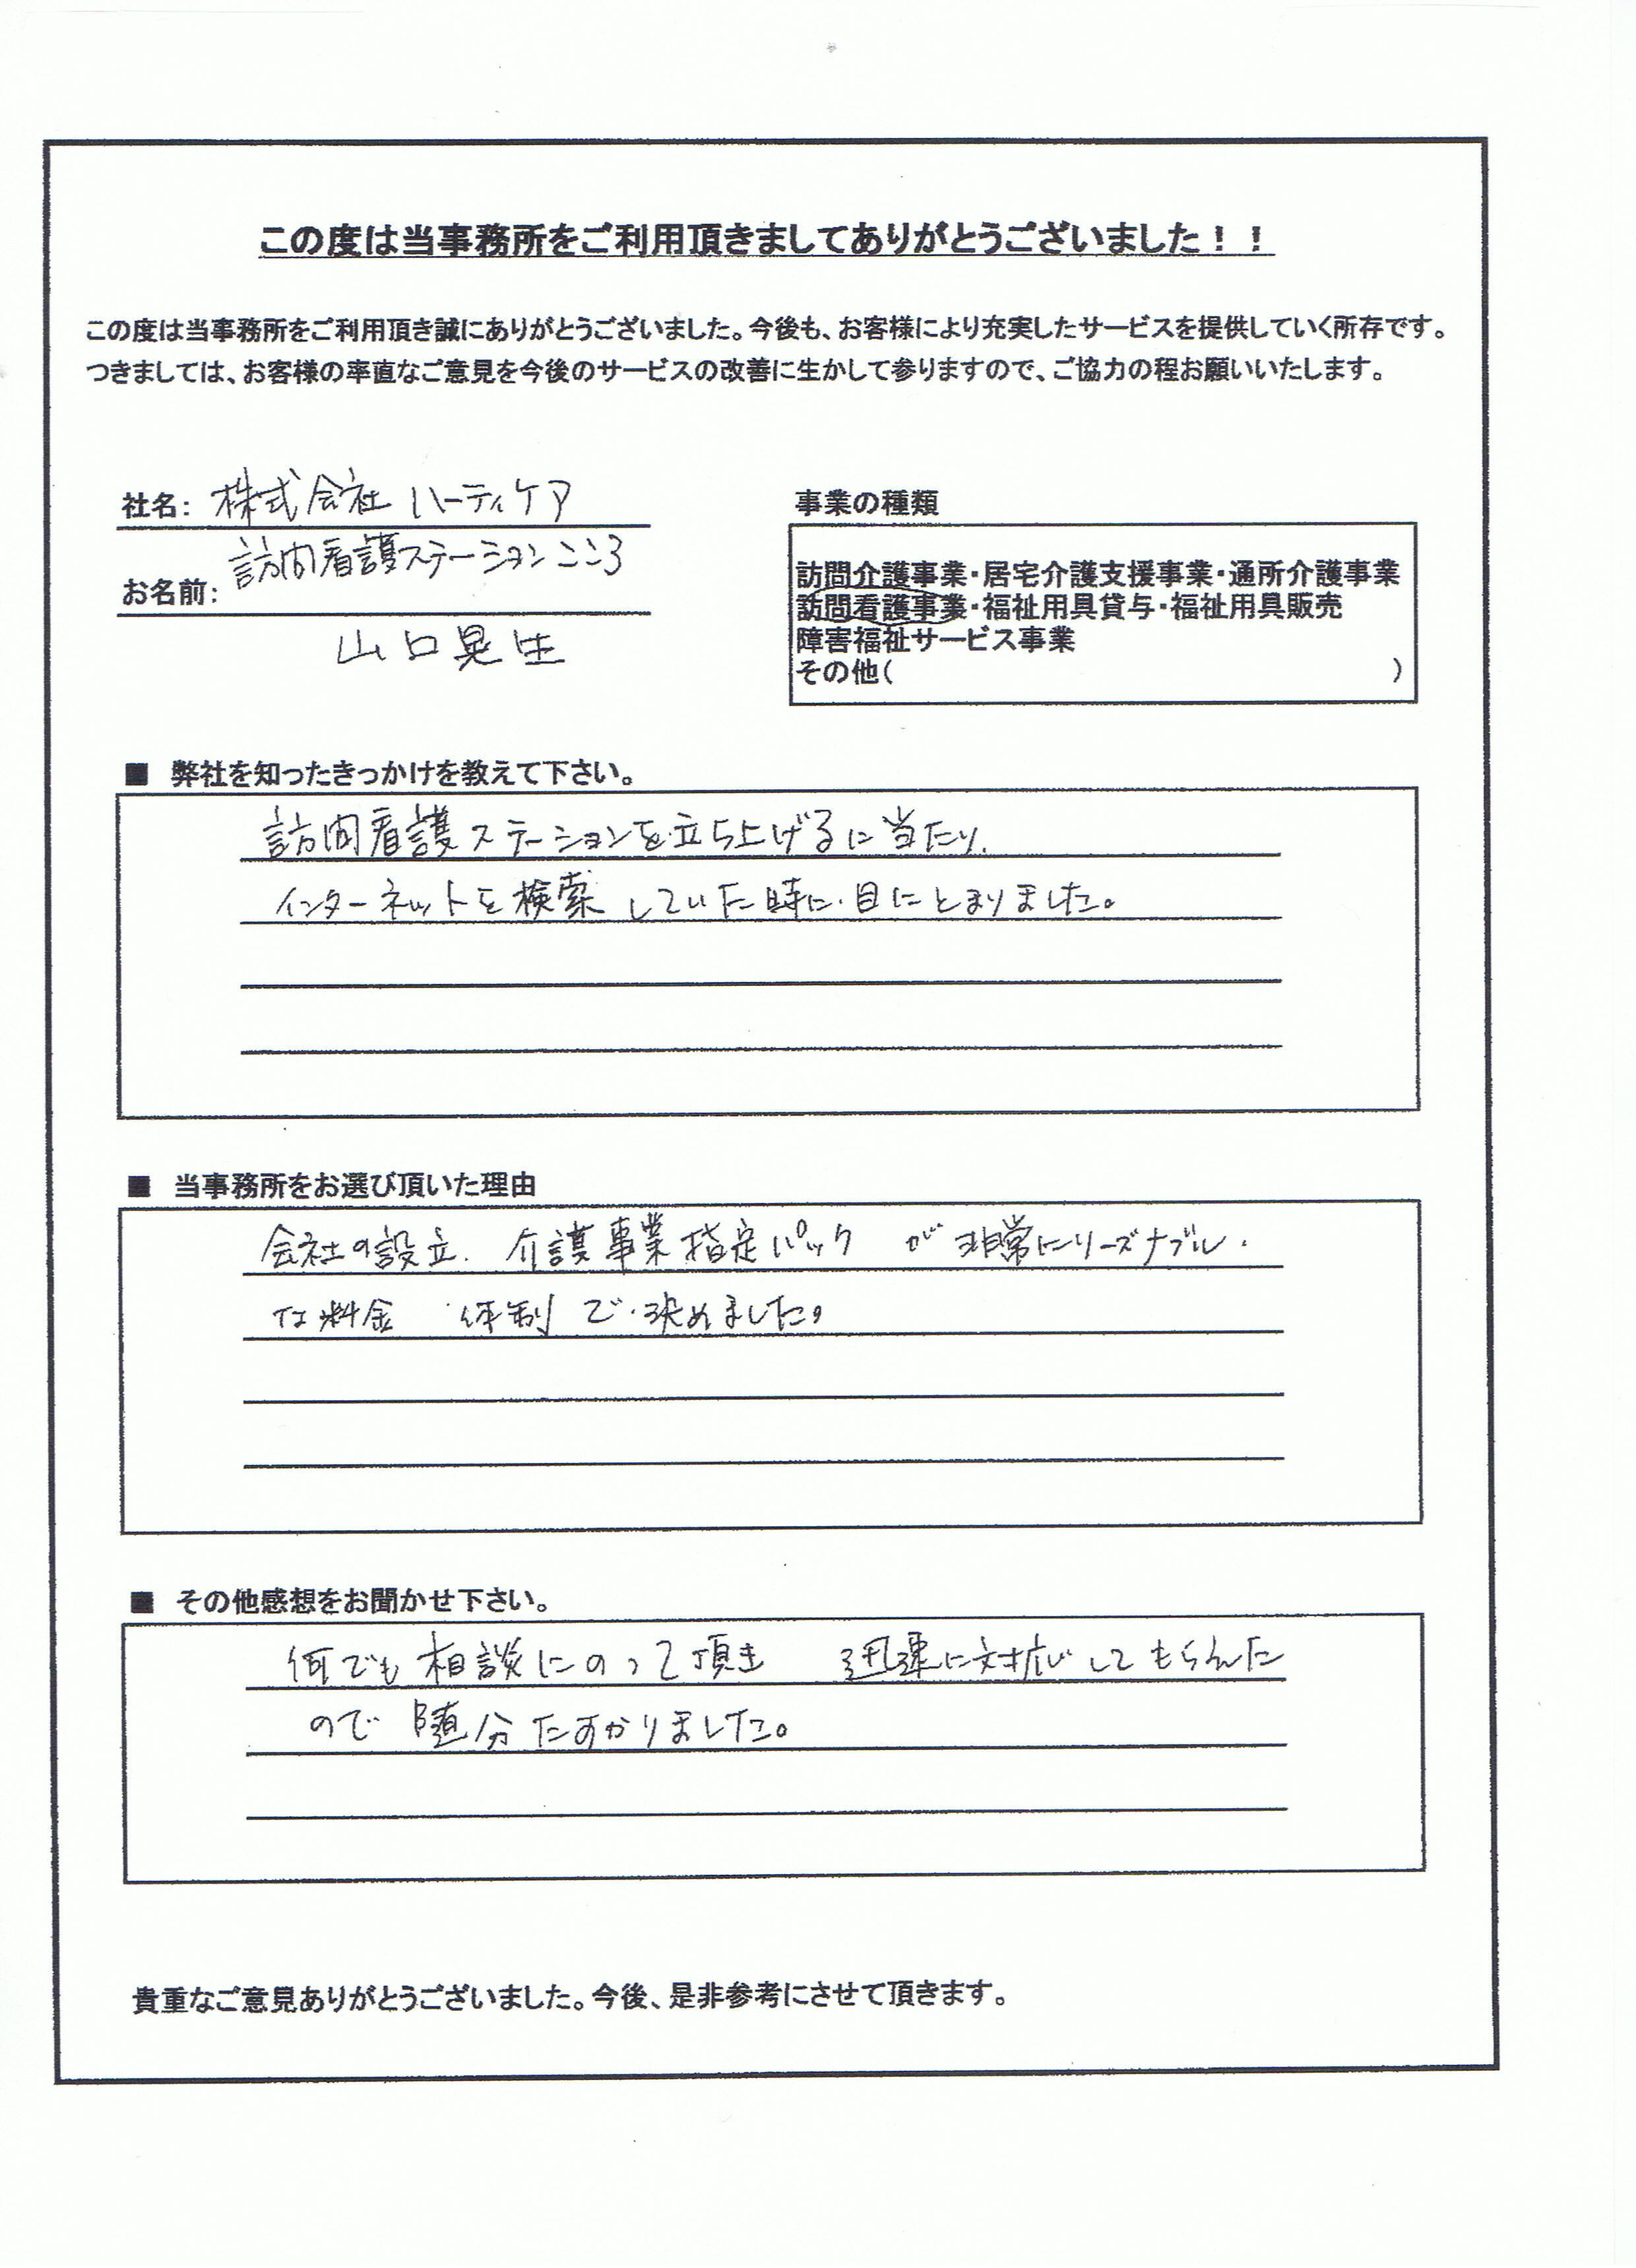 この度は当事務所をご利用頂きましてありがとうございました！！
この度は当事務所をご利用頂き誠にありがとうございました。今後も、お客様により充実したサービスを提供していく所存です。
つきましては、お客様の率直なご意見を今後のサービスの改善に生かして参りますので、ご協力の程お願いいたします。
社名: 株式会社 ハーティケア
訪問看護ステーションこころ
お名前:
山口晃生
事業の種類
訪問介護事業・居宅介護支援事業・通所介護事業
訪問看護事業・福祉用具貸与・福祉用具販売
障害福祉サービス事業
その他( )
■ 弊社を知ったきっかけを教えて下さい。
訪問看護ステーションを立ち上げるに当たり、
インターネットを検索していた時に目にとまりました。
■ 当事務所をお選び頂いた理由
会社の設立、介護事業指定パックが非常にリーズナブル
な料金 体制で決めました。
■ その他感想をお聞かせ下さい。
何でも相談にのって頂き 迅速に対応してもらえた
ので随分たすかりました。
貴重なご意見ありがとうございました。今後、是非参考にさせて頂きます。